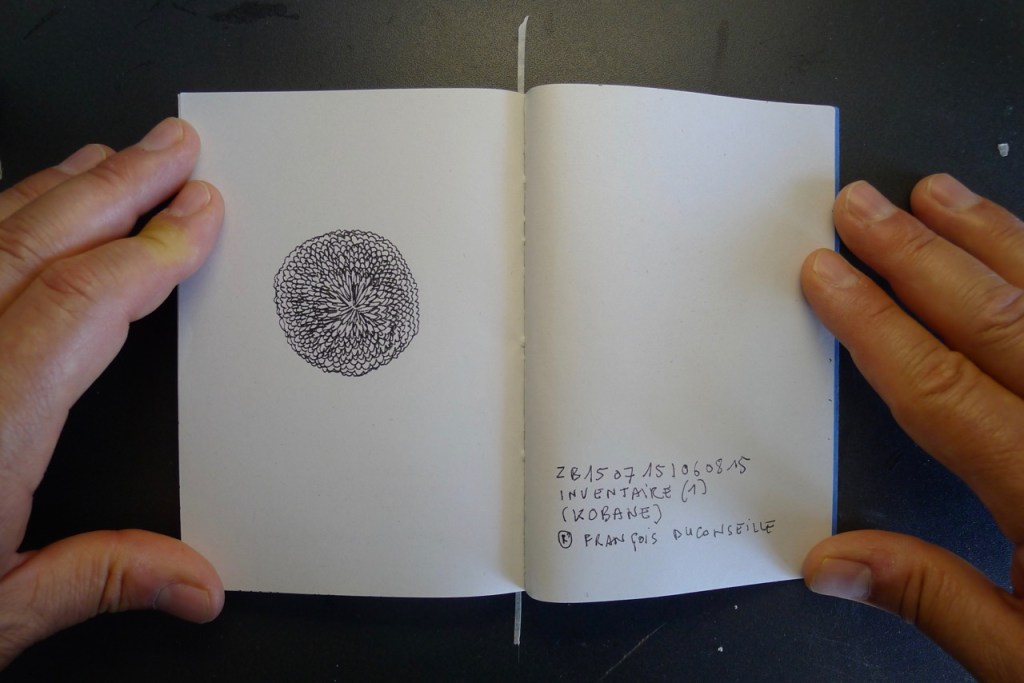 ZB150715|060815
INVENTAIRE (1)
(KOBANE)
® FRANÇOIS DUCONSEILLE